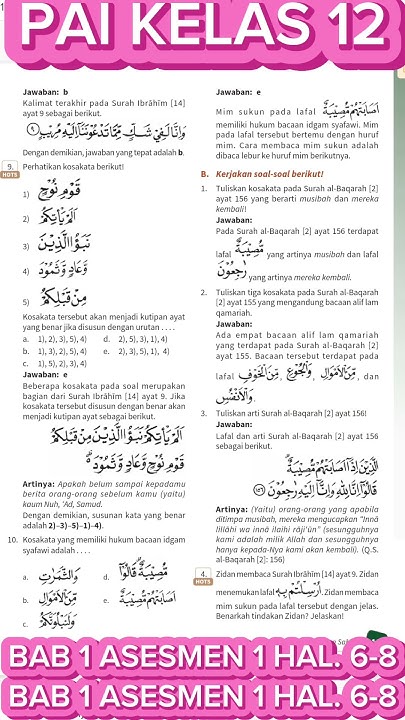 PAI KELAS 12
Jawaban: b
Kalimat terakhir pada Surah Ibrāhīm [14]
ayat 9 sebagai berikut.
وَاِنَّا لَفِيْ شَكٍّ مِّمَّا تَدْعُوْنَنَآ اِلَيْهِ مُرِيْبٍ ﴿٩﴾
Dengan demikian, jawaban yang tepat adalah b.
9. Perhatikan kosakata berikut!
HOTS
1) قَوْمِ نُوْحٍ
2) اَلَمْ يَأْتِكُمْ
3) نَبَؤُا الَّذِيْنَ
4) وَّعَادٍ وَّثَمُوْدَ
5) مِنْ قَبْلِكُمْ
Kosakata tersebut akan menjadi kutipan ayat
yang benar jika disusun dengan urutan . . . .
a. 1), 2), 3), 5), 4) d. 2), 5), 3), 1), 4)
b. 1), 3), 2), 5), 4) e. 2), 3), 5), 1), 4)
c. 1), 5), 2), 3), 4)
Jawaban: e
Beberapa kosakata pada soal merupakan
bagian dari Surah Ibrāhīm [14] ayat 9. Jika
kosakata tersebut disusun dengan benar akan
menjadi kutipan ayat sebagai berikut.
اَلَمْ يَأْتِكُمْ نَبَؤُا الَّذِيْنَ مِنْ قَبْلِكُمْ
قَوْمِ نُوْحٍ وَّعَادٍ وَّثَمُوْدَ ۛ
Artinya: Apakah belum sampai kepadamu
berita orang-orang sebelum kamu (yaitu)
kaum Nuh, 'Ad, Samud.
Dengan demikian, susunan kata yang benar
adalah 2)–3)–5)–1)–4).
10. Kosakata yang memiliki hukum bacaan idgam
syafawi adalah . . . .
a. وَالثَّمَرٰتِ d. مُّصِيْبَةٌ ۙ قَالُوْٓا
b. مِّنَ الْاَمْوَالِ e. اَصَابَتْهُمْ مُّصِيْبَةٌ
c. وَلَنَبْلُوَنَّكُمْ
Jawaban: e
Mim sukun pada lafal اَصَابَتْهُمْ مُّصِيْبَةٌ
memiliki hukum bacaan idgam syafawi. Mim
pada lafal tersebut bertemu dengan huruf
mim. Cara membaca mim sukun adalah
dibaca lebur ke huruf mim berikutnya.
B. Kerjakan soal-soal berikut!
1. Tuliskan kosakata pada Surah al-Baqarah [2]
ayat 156 yang berarti musibah dan mereka
kembali!
Jawaban:
Pada Surah al-Baqarah [2] ayat 156 terdapat
lafal مُّصِيْبَةٌ yang artinya musibah dan lafal
رٰجِعُوْنَ yang artinya mereka kembali.
2. Tuliskan tiga kosakata pada Surah al-Baqarah
[2] ayat 155 yang mengandung bacaan alif lam
qamariah.
Jawaban:
Ada empat bacaan alif lam qamariah
yang terdapat pada Surah al-Baqarah [2]
ayat 155. Bacaan tersebut terdapat pada
lafal مِّنَ الْخَوْفِ, وَالْجُوْعِ, مِّنَ الْاَمْوَالِ, dan
وَالْاَنْفُسِ.
3. Tuliskan arti Surah al-Baqarah [2] ayat 156!
Jawaban:
Lafal dan arti Surah al-Baqarah [2] ayat 156
sebagai berikut.
الَّذِيْنَ اِذَآ اَصَابَتْهُمْ مُّصِيْبَةٌ ۙ
قَالُوْٓا اِنَّا لِلّٰهِ وَاِنَّآ اِلَيْهِ رٰجِعُوْنَ ﴿١٥٦﴾
Artinya: (Yaitu) orang-orang yang apabila
ditimpa musibah, mereka mengucapkan "Innā
lillāhi wa innā ilaihi rāji'ūn" (sesungguhnya
kami adalah milik Allah dan sesungguhnya
hanya kepada-Nya kami akan kembali). (Q.S.
al-Baqarah [2]: 156)
4. Zidan membaca Surah Ibrāhīm [14] ayat 9. Zidan
HOTS
menemukan lafal اُرْسِلْتُمْ بِهٖ. Zidan membaca
mim sukun pada lafal tersebut dengan jelas.
Benarkah tindakan Zidan? Jelaskan!
BAB 1 ASESMEN 1 HAL. 6-8
BAB 1 ASESMEN 1 HAL. 6-8